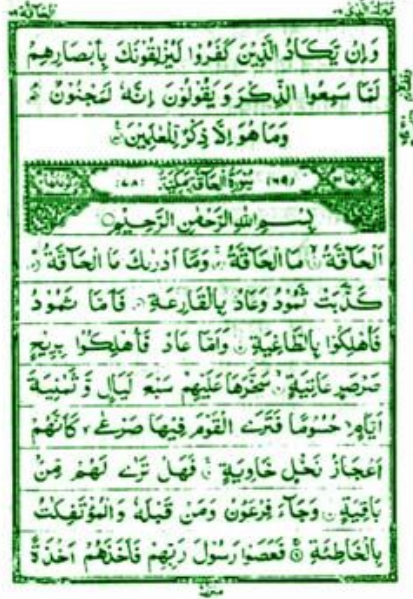 تبٰرك الذی ٢٩
الحاقة ٦٩
وَاِنْ يَّكَادُ الَّذِيْنَ كَفَرُوْا لَيُزْلِقُوْنَكَ بِاَبْصَارِهِمْ
لَمَّا سَمِعُوا الذِّكْرَ وَ يَقُوْلُوْنَ اِنَّهٗ لَمَجْنُوْنٌ ۘ
وَمَا هُوَ اِلَّا ذِكْرٌ لِّلْعٰلَمِيْنَ
(٦٩) سُوْرَةُ الْحَآقَّةِ مَكِّيَّةٌ (٧٨)
بِسْمِ اللهِ الرَّحْمٰنِ الرَّحِيْمِ
اَلْحَآقَّةُ مَا الْحَآقَّةُ وَمَآ اَدْرٰىكَ مَا الْحَآقَّةُ
كَذَّبَتْ ثَمُوْدُ وَعَادٌۢ بِالْقَارِعَةِ فَاَمَّا ثَمُوْدُ
فَاُهْلِكُوْا بِالطَّاغِيَةِ وَاَمَّا عَادٌ فَاُهْلِكُوْا بِرِيْحٍ
صَرْصَرٍ عَاتِيَةٍ سَخَّرَهَا عَلَيْهِمْ سَبْعَ لَيَالٍ وَّ ثَمٰنِيَةَ
اَيَّامٍ حُسُوْمًا فَتَرَى الْقَوْمَ فِيْهَا صَرْعٰى كَاَنَّهُمْ
اَعْجَازُ نَخْلٍ خَاوِيَةٍ فَهَلْ تَرٰى لَهُمْ مِّنْۢ
بَاقِيَةٍ وَجَآءَ فِرْعَوْنُ وَمَنْ قَبْلَهٗ وَالْمُؤْتَفِكٰتُ
بِالْخَاطِئَةِ فَعَصَوْا رَسُوْلَ رَبِّهِمْ فَاَخَذَهُمْ اَخْذَةً